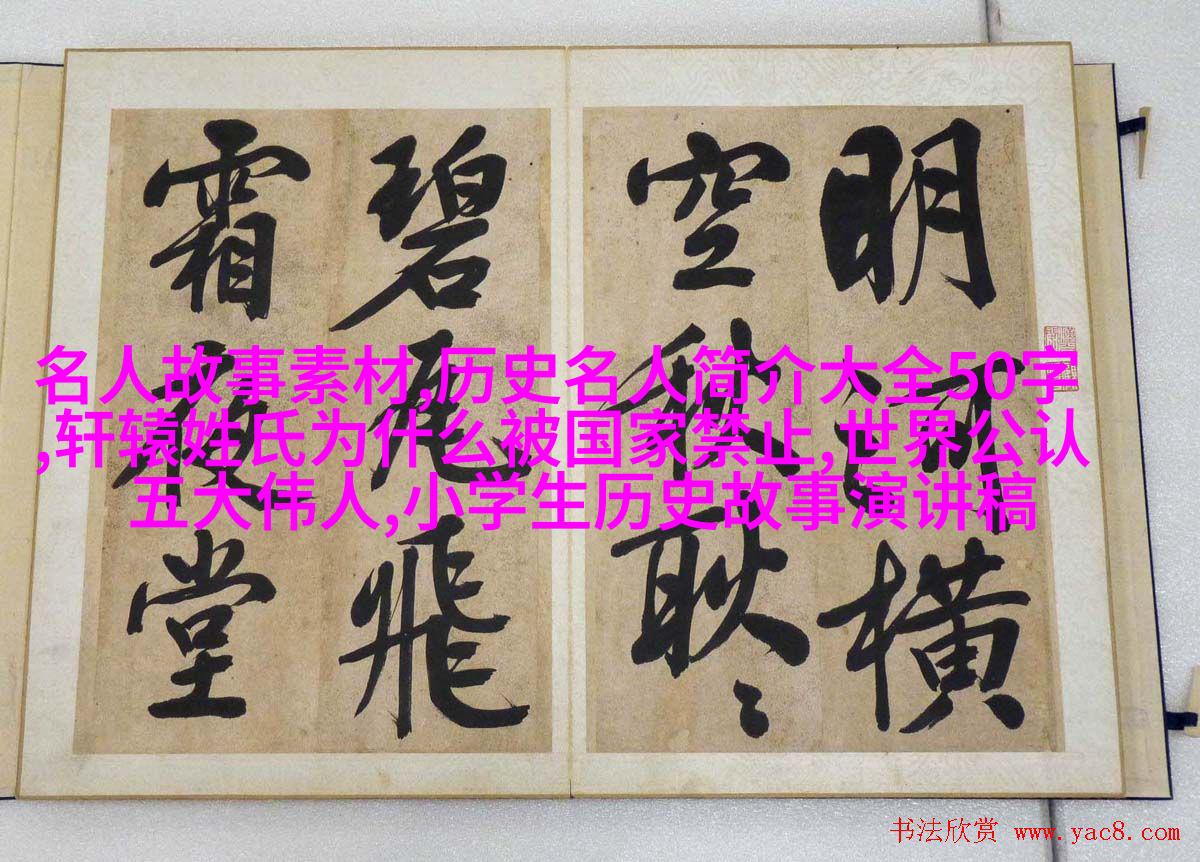 明河橫
空秋耿〻
碧瓦飛
霜夜堂
名人故事素材,历史名人简介大全50字
,轩辕姓氏为什么被国家禁止,世界公认
五大伟人,小学生历史故事演讲稿
书法欣赏 www.yac8.com